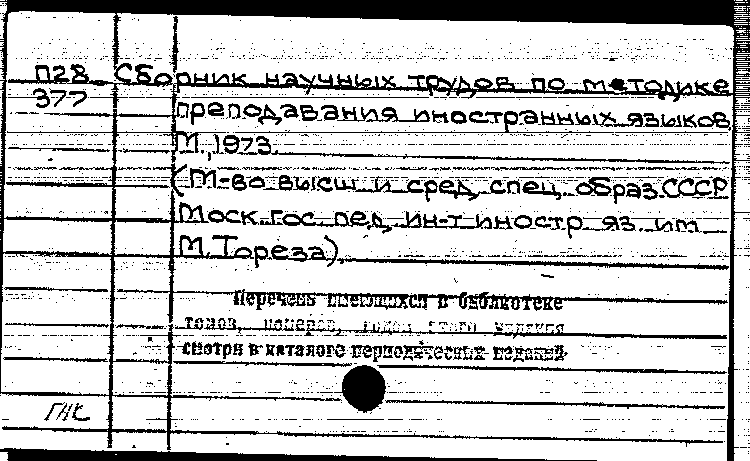 П28 Сборник научных трудов по методике
377 преподавания иностранных языков
М., 1973.
(М-во высш. и сред. спец. образ. СССР
Моск. гос. пед. ин-т иностр. яз. им.
М. Тореза).
Перечень имеющихся в библиотеке
томов, номеров, годов этого издания
смотри в каталоге периодических изданий
ГНК